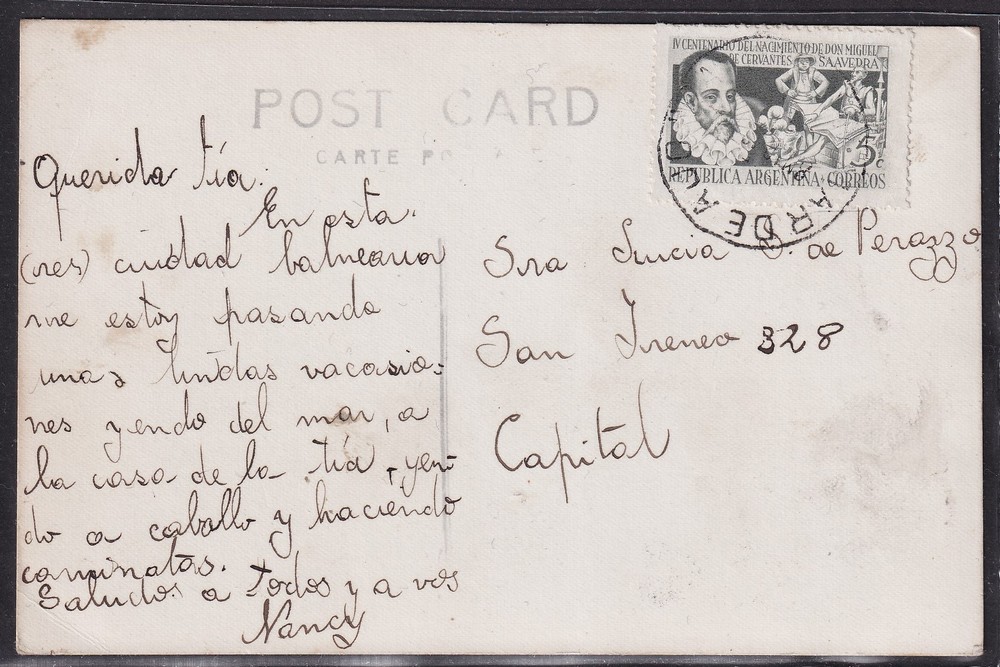 POST CARD
CARTE PO
IV CENTENARIO DEL NACIMIENTO DE DON MIGUEL
DE CERVANTES SAAVEDRA
5c
REPUBLICA ARGENTINA · CORREOS
AR DE AJO
Querida tía.
En esta
(res) ciudad balnearia
me estoy pasando
unas lindas vacasio-
nes yendo del mar, a
la casa de la tía, yen-
do a caballo y haciendo
caminatas.
Saludos a todos y a vos
Nancy
Sra Lucia S. de Perazzo
San Ireneo 328
Capital